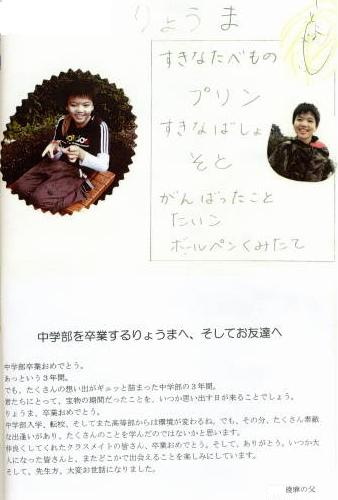 りょうま
すきなたべもの
プリン
すきなばしょ
そと
がんばったこと
たいいん
ボールペンくみたて
中学部を卒業するりょうまへ、そしてお友達へ
中学部卒業おめでとう。
あっという３年間。
でも、たくさんの想い出がギュッと詰まった中学部の３年間。
君たちにとって、宝物の期間だったことを、いつか思い出す日が来ることでしょう。
りょうま、卒業おめでとう。
中学部入学、転校、そしてまた高等部からは環境が変わるね。でも、その分、たくさん素敵
な出逢いがあり、たくさんのことを学んだのではないかと思います。
仲良くしてくれたクラスメイトの皆さん、卒業おめでとう。そして、ありがとう。いつか大
人になった皆さんと、またどこかで出会えることを楽しみにしています。
そして、先生方、大変お世話になりました。
の父